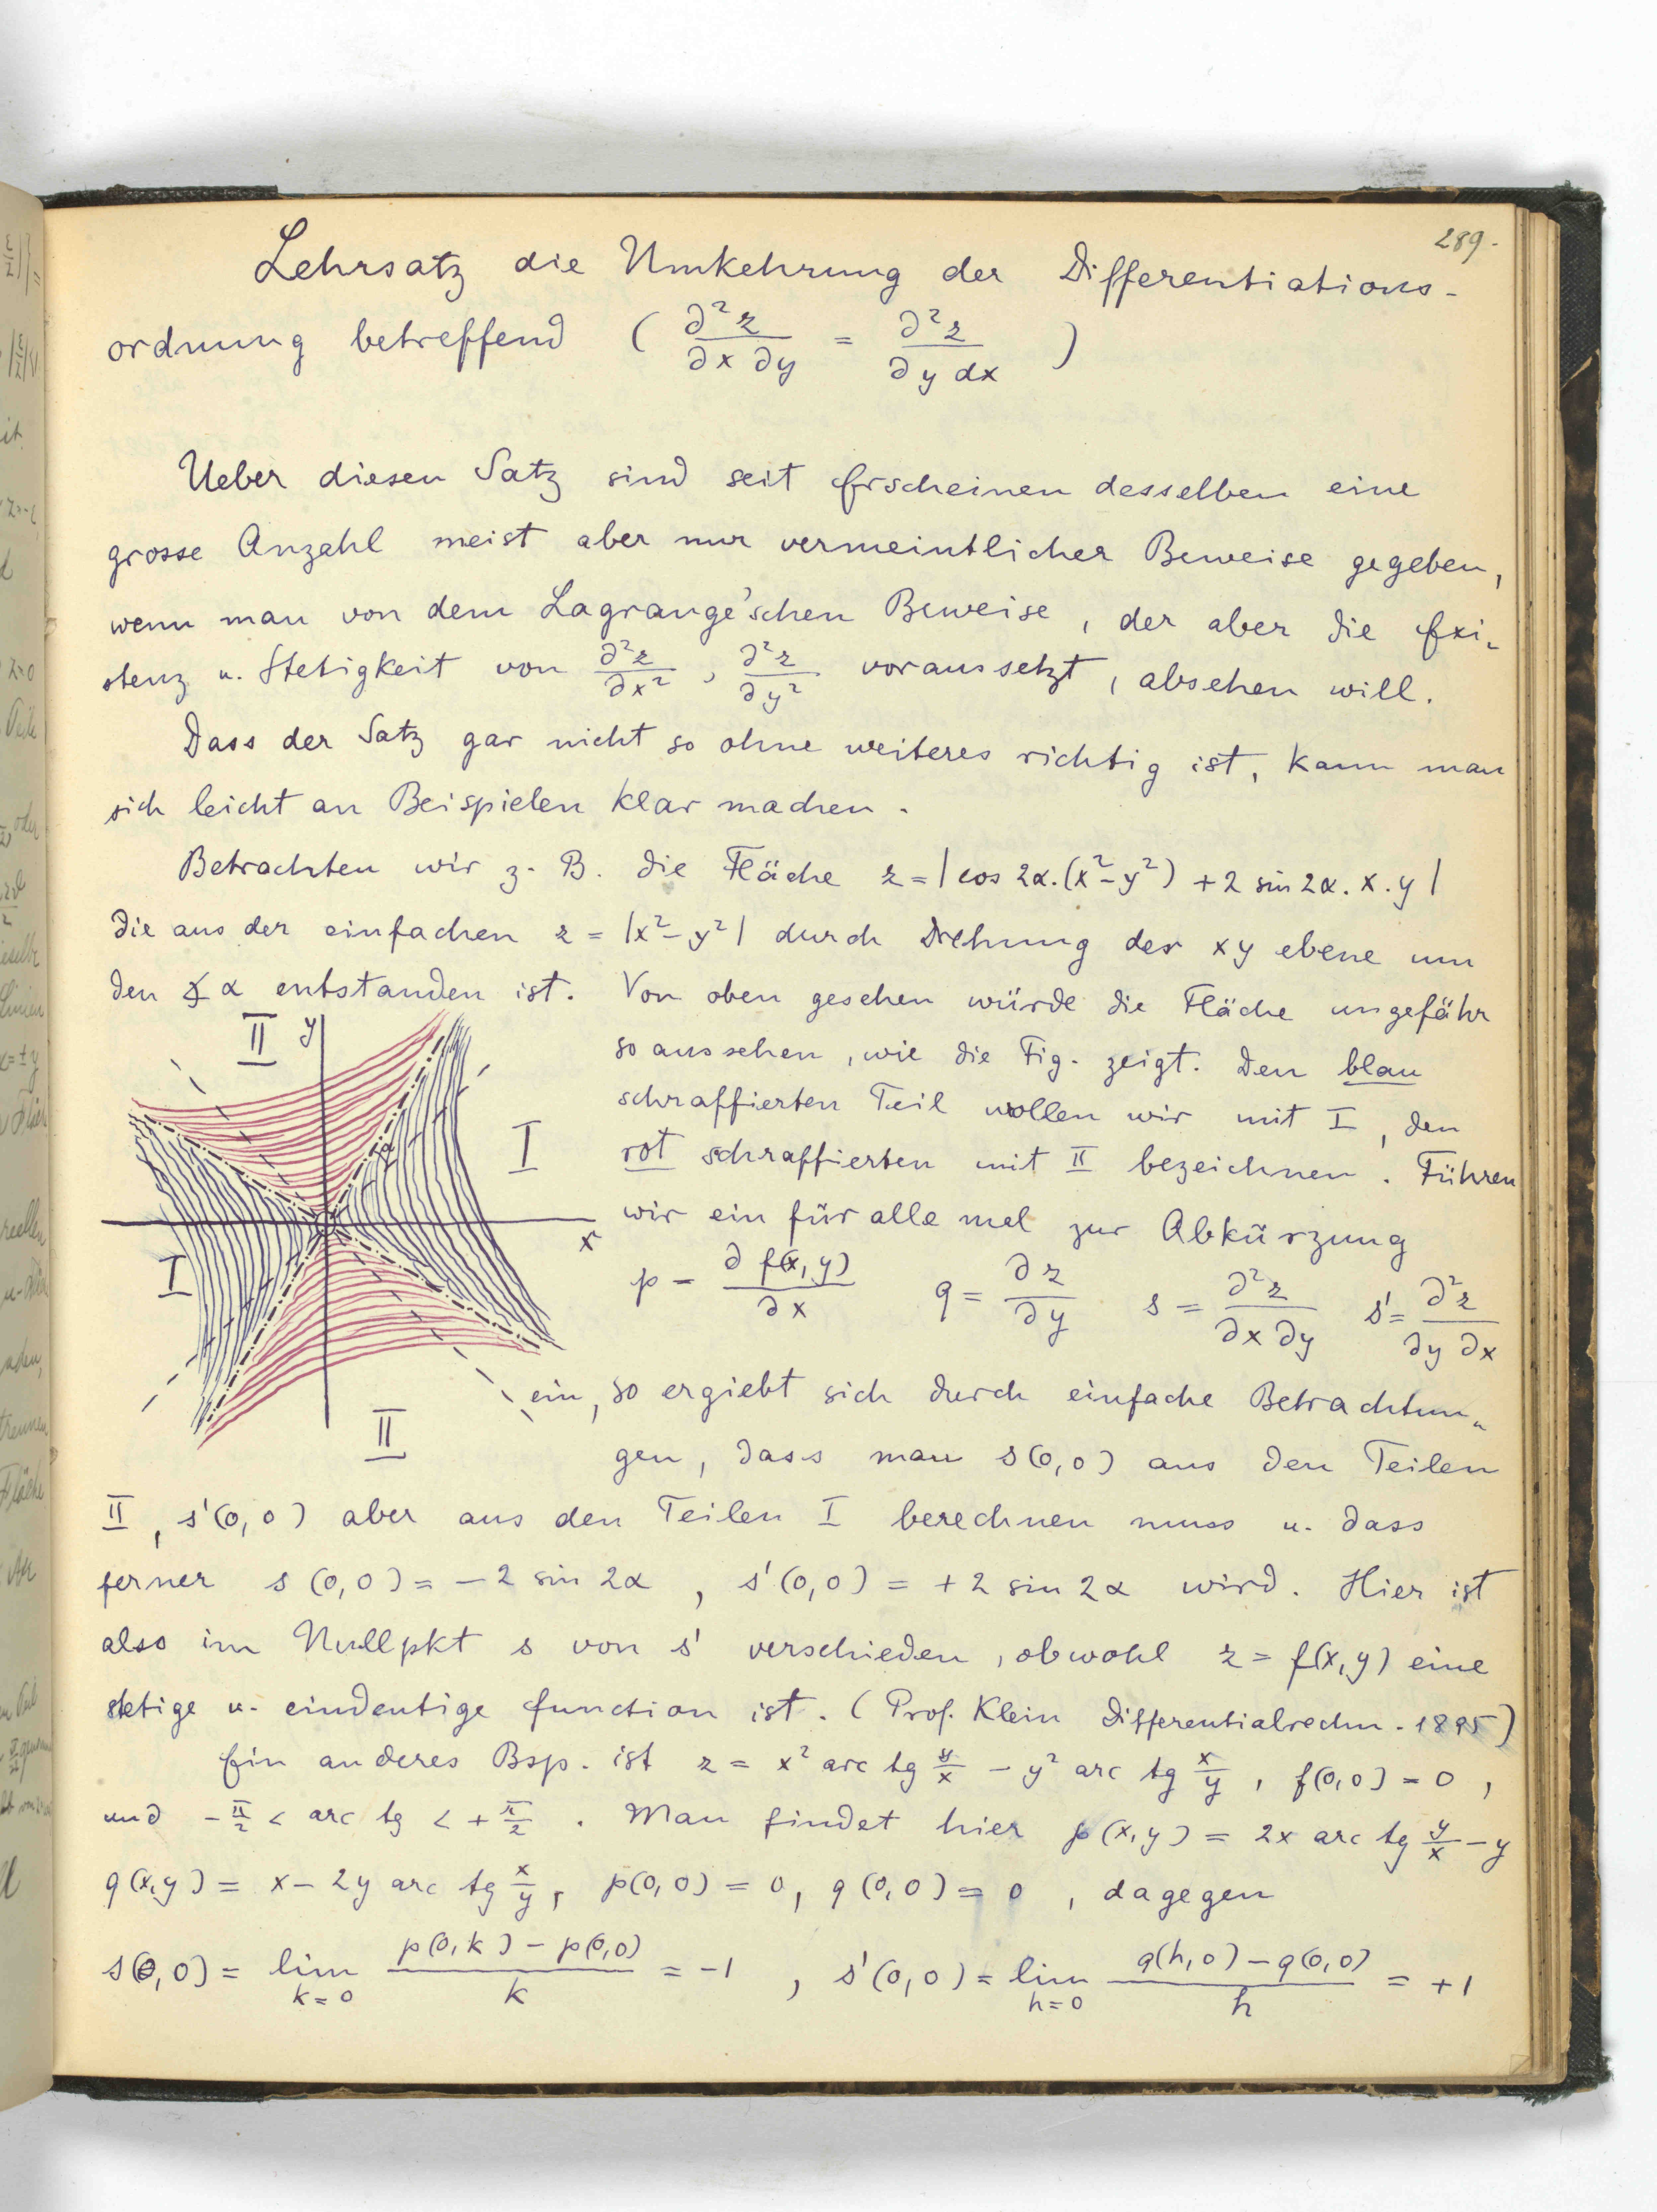 289.
Lehrsatz die Umkehrung der Differentiations-
ordnung betreffend ( ∂²z/∂x ∂y = ∂²z/∂y dx )
Ueber diesen Satz sind seit Erscheinen desselben eine
grosse Anzahl meist aber nur vermeintlicher Beweise gegeben,
wenn man von dem Lagrange'schen Beweise, der aber die Exi-
stenz u. Stetigkeit von ∂²z/∂x², ∂²z/∂y² voraussetzt, absehen will.
Dass der Satz gar nicht so ohne weiteres richtig ist, kann man
sich leicht an Beispielen klar machen.
Betrachten wir z. B. die Fläche z = |cos 2α.(x²-y²) + 2 sin 2α. x. y|
die aus der einfachen z = |x²-y²| durch Drehung der xy ebene um
den ∡ α entstanden ist. Von oben gesehen würde die Fläche ungefähr
so aussehen, wie die Fig. zeigt. Den blau
schraffierten Teil wollen wir mit I, den
rot schraffierten mit II bezeichnen. Führen
wir ein für alle mal zur Abkürzung
p = ∂f(x,y)/∂x q = ∂z/∂y s = ∂²z/∂x ∂y s' = ∂²z/∂y ∂x
ein, so ergiebt sich durch einfache Betrachtun-
gen, dass man s(0,0) aus den Teilen
II y
I
α
x
I
II
II, s'(0,0) aber aus den Teilen I berechnen muss u. dass
ferner s(0,0) = -2 sin 2α, s'(0,0) = +2 sin 2α wird. Hier ist
also im Nullpkt s von s' verschieden, obwohl z = f(x,y) eine
stetige u. eindeutige function ist. (Prof. Klein Differentialrechn. 1895)
Ein anderes Bsp. ist z = x² arc tg y/x - y² arc tg x/y, f(0,0) = 0,
und -π/2 < arc tg < +π/2. Man findet hier p(x,y) = 2x arc tg y/x - y
q(x,y) = x - 2y arc tg x/y, p(0,0) = 0, q(0,0) = 0, dagegen
s(0,0) = lim k=0 p(0,k) - p(0,0)/k = -1, s'(0,0) = lim h=0 q(h,0) - q(0,0)/h = +1